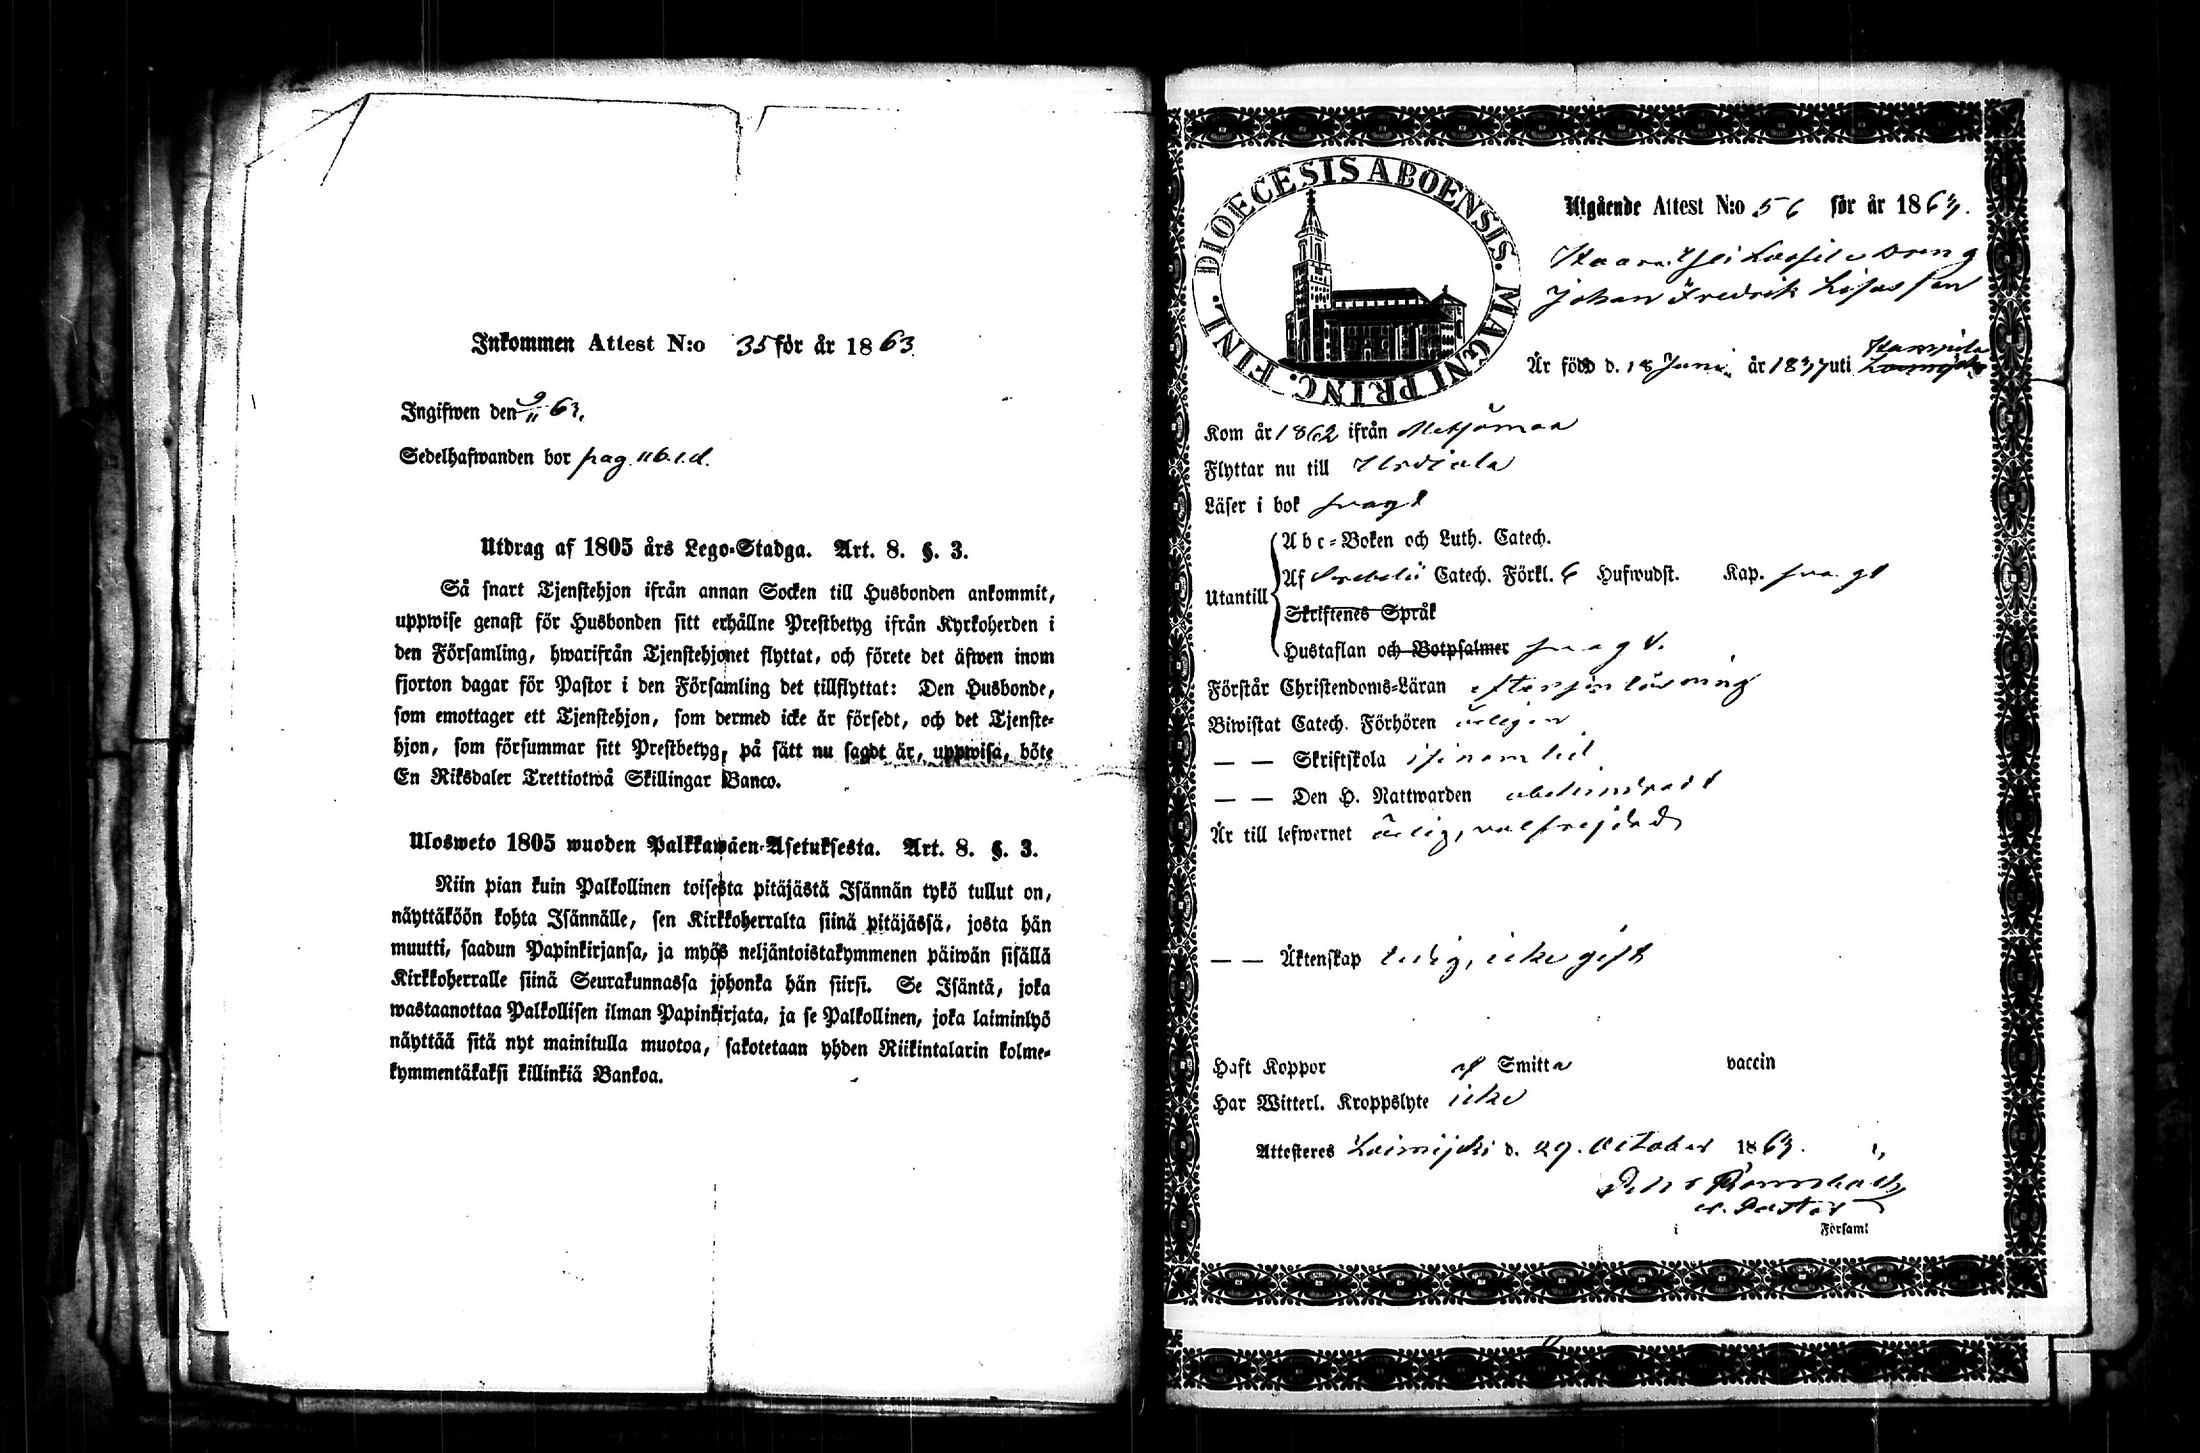 Inkommen Attest N:o 35 för år 1863.
Ingifwen den 9/11 63.
Sedelhafwanden bor pag. 116. e.d.
Utdrag af 1805 års Lego-Stadga. Art. 8. §. 3.
Så snart Tjenstehjon ifrån annan Socken till Husbonden ankommit,
uppwise genast för Husbonden sitt erhållne Prestbetyg ifrån Kyrkoherden i
den Församling, hwarifrån Tjenstehjonet flyttat, och förete det äfwen inom
fjorton dagar för Pastor i den Församling det tillflyttat: Den Husbonde,
som emottager ett Tjenstehjon, som dermed icke är försedt, och det Tjenste-
hjon, som försummar sitt Prestbetyg, på sätt nu sagdt är, uppwisa, böte
En Riksdaler Trettiotwå Skillingar Banco.
Ulosweto 1805 wuoden Palkkawäen-Asetuksesta. Art. 8. §. 3.
Niin pian kuin Palkollinen toisesta pitäjästä Isännän tykö tullut on,
näyttäköön kohta Isännälle, sen Kirkkoherralta siinä pitäjässä, josta hän
muutti, saadun Papinkirjansa, ja myös neljäntoistakymmenen päiwän sisällä
Kirkkoherralle siinä Seurakunnassa johonka hän siirsi. Se Isäntä, joka
wastaanottaa Palkollisen ilman Papinkirjata, ja se Palkollinen, joka laiminlyö
näyttää sitä nyt mainitulla muotoa, sakotetaan yhden Riikintalarin kolme-
kymmentäkaksi killinkiä Bankoa.
DIOECESIS ABOENSIS. MAGNI PRINC. FINL.
Utgående Attest N:o 56 för år 1863.
Dreng
Johan Fredrik
Är född d. 18 Juni år 1837 uti
Kom år 1862 ifrån
Flyttar nu till Urdiala
Läser i bok svagt
Abc-Boken och Luth. Catech.
Utantill
Af Svebelii Catech. Förkl. 6 Hufwudst. Kap. svagt
Skriftenes Språk
Hustaflan och Botpsalmer svagt.
Förstår Christendoms-Läran efter sin läsning
Biwistat Catech. Förhören årligen
— — Skriftskola i sinom tid
— — Den H. Nattwarden obehindradt
Är till lefwernet ärlig, välfrejdad
— — Äktenskap ledig, icke gift
Haft Koppor af Smitta vaccin
Har Witterl. Kroppslyte icke
Attesteres Loimijoki d. 29. October 1863.
v. Pastor
i Församl